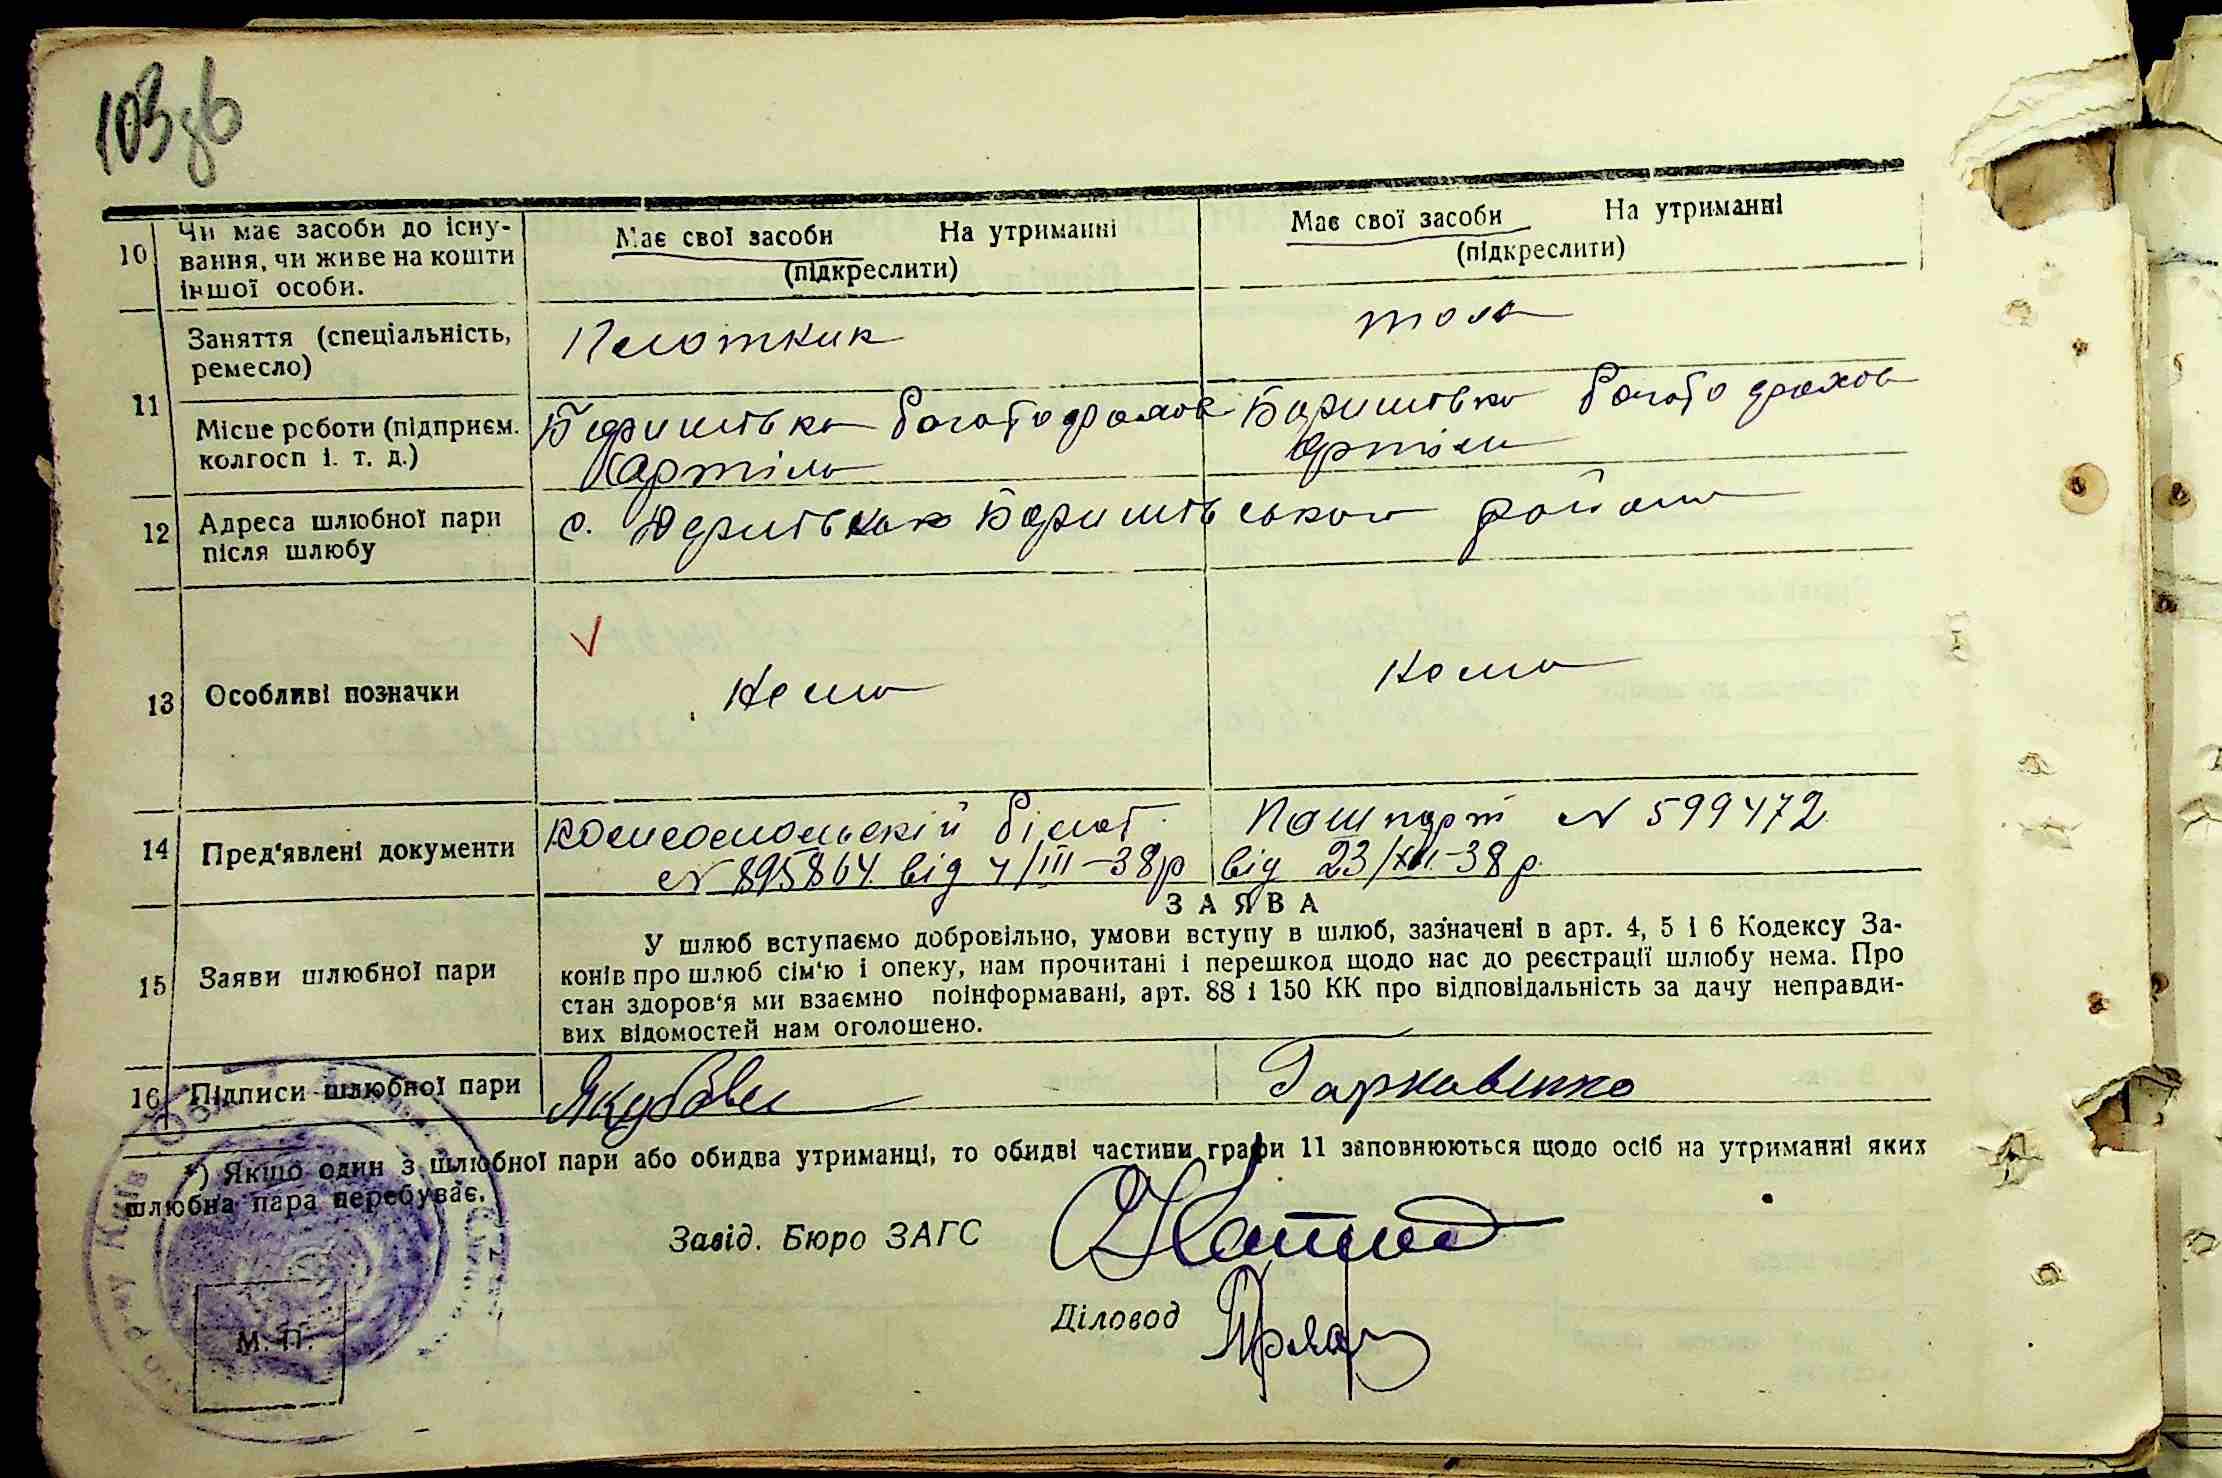 103зв
10 Чи має засоби до існу-
вання, чи живе на кошти
іншої особи.
Має свої засоби На утриманні
(підкреслити)
Має свої засоби На утриманні
(підкреслити)
11 Заняття (спеціальність,
ремесло)
Плотник
Місце роботи (підприєм.
колгосп і. т. д.)
Баришівка багатопромов
артіль
Баришівка багато промов
артіль
12 Адреса шлюбної пари
після шлюбу
с. Баришівського району
13 Особливі позначки
Нема
Нема
14 Пред'явлені документи
Комсомольскій білет
№ 895864 від 4/III-38р
Пашпорт № 599472
від 23/XII-38р.
15 Заяви шлюбної пари
ЗАЯВА
У шлюб вступаємо добровільно, умови вступу в шлюб, зазначені в арт. 4, 5 і 6 Кодексу За-
конів про шлюб сім'ю і опеку, нам прочитані і перешкод щодо нас до реєстрації шлюбу нема. Про
стан здоров'я ми взаємно поінформавані, арт. 88 і 150 КК про відповідальність за дачу неправди-
вих відомостей нам оголошено.
16 Підписи шлюбної пари
Гаркавенко
*) Якшо один з шлюбної пари або обидва утриманці, то обидві частини графи 11 заповнюються щодо осіб на утриманні яких
шлюбна пара перебуває.
Завід. Бюро ЗАГС
Діловод
М. П.